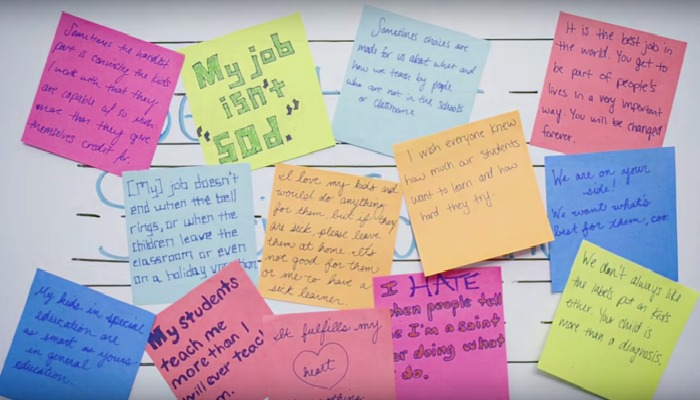 Sometimes the hardest
part is convincing the kids
I work with that they
are capable of so much
more than they give
themselves credit for.
My job
isn't
"SOd."
Sometimes choices are
made for us about what and
how we teach by people
who are not in the schools
or classrooms
It is the best job in
the world. You get to
be part of people's
lives in a very important
way. You will be changed
forever.
[My] job doesn't
end when the bell
rings, or when the
children leave the
classroom or even
on a holiday vacation
I love my kids and
would do anything
for them but if they
are sick, please leave
them at home. It's
not good for them
or me to have a
sick learner.
I wish everyone knew
how much our students
want to learn and how
hard they try.
We are on your
side!
We want what's
best for them, too.
My kids in special
education are
as smart as yours
in general
education.
My students
teach me
more than I
will ever teach
It fulfills my
heart
I HATE
when people tell
me I'm a saint
for doing what
I do.
We don't always like
the labels put on kids
either. Your child is
more than a diagnosis.